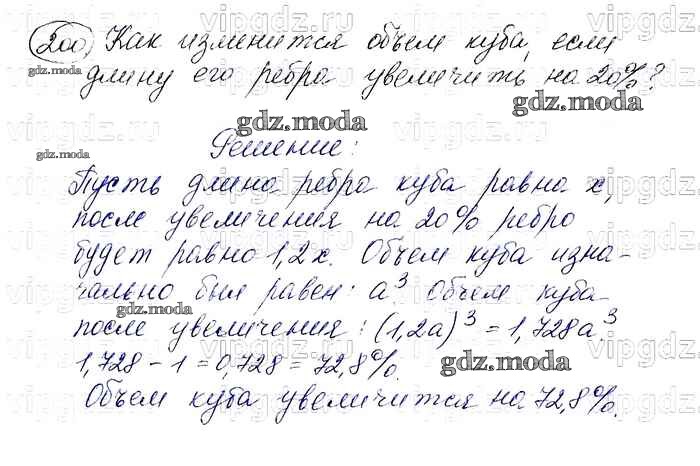 200. Как изменится объем куба, если
gdz.moda
длину его ребра увеличить на 20%?
gdz.moda
gdz.moda
Решение:
Пусть длина ребра куба равна x,
после увеличения на 20% ребро
будет равно 1,2x. Объем куба изна-
чально был равен: a³. Объем куба
gdz.moda
после увеличения: (1,2a)³ = 1,728a³.
1,728 - 1 = 0,728 = 72,8%.
gdz.moda
Объем куба увеличится на 72,8%.
vipgdz.ru